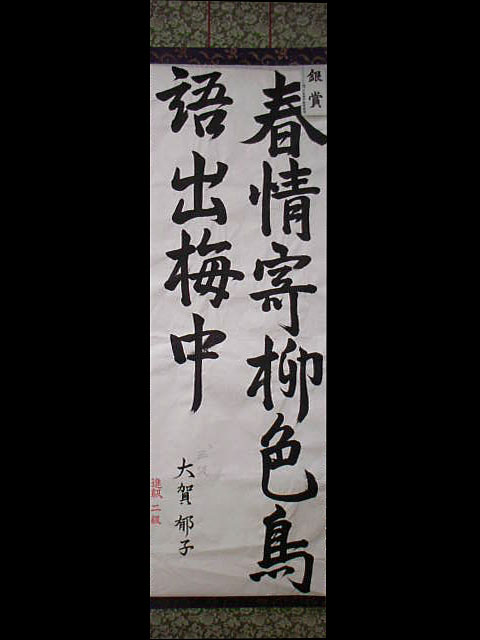 銀賞
春情寄柳色鳥
語出梅中
大賀郁子
進級二級